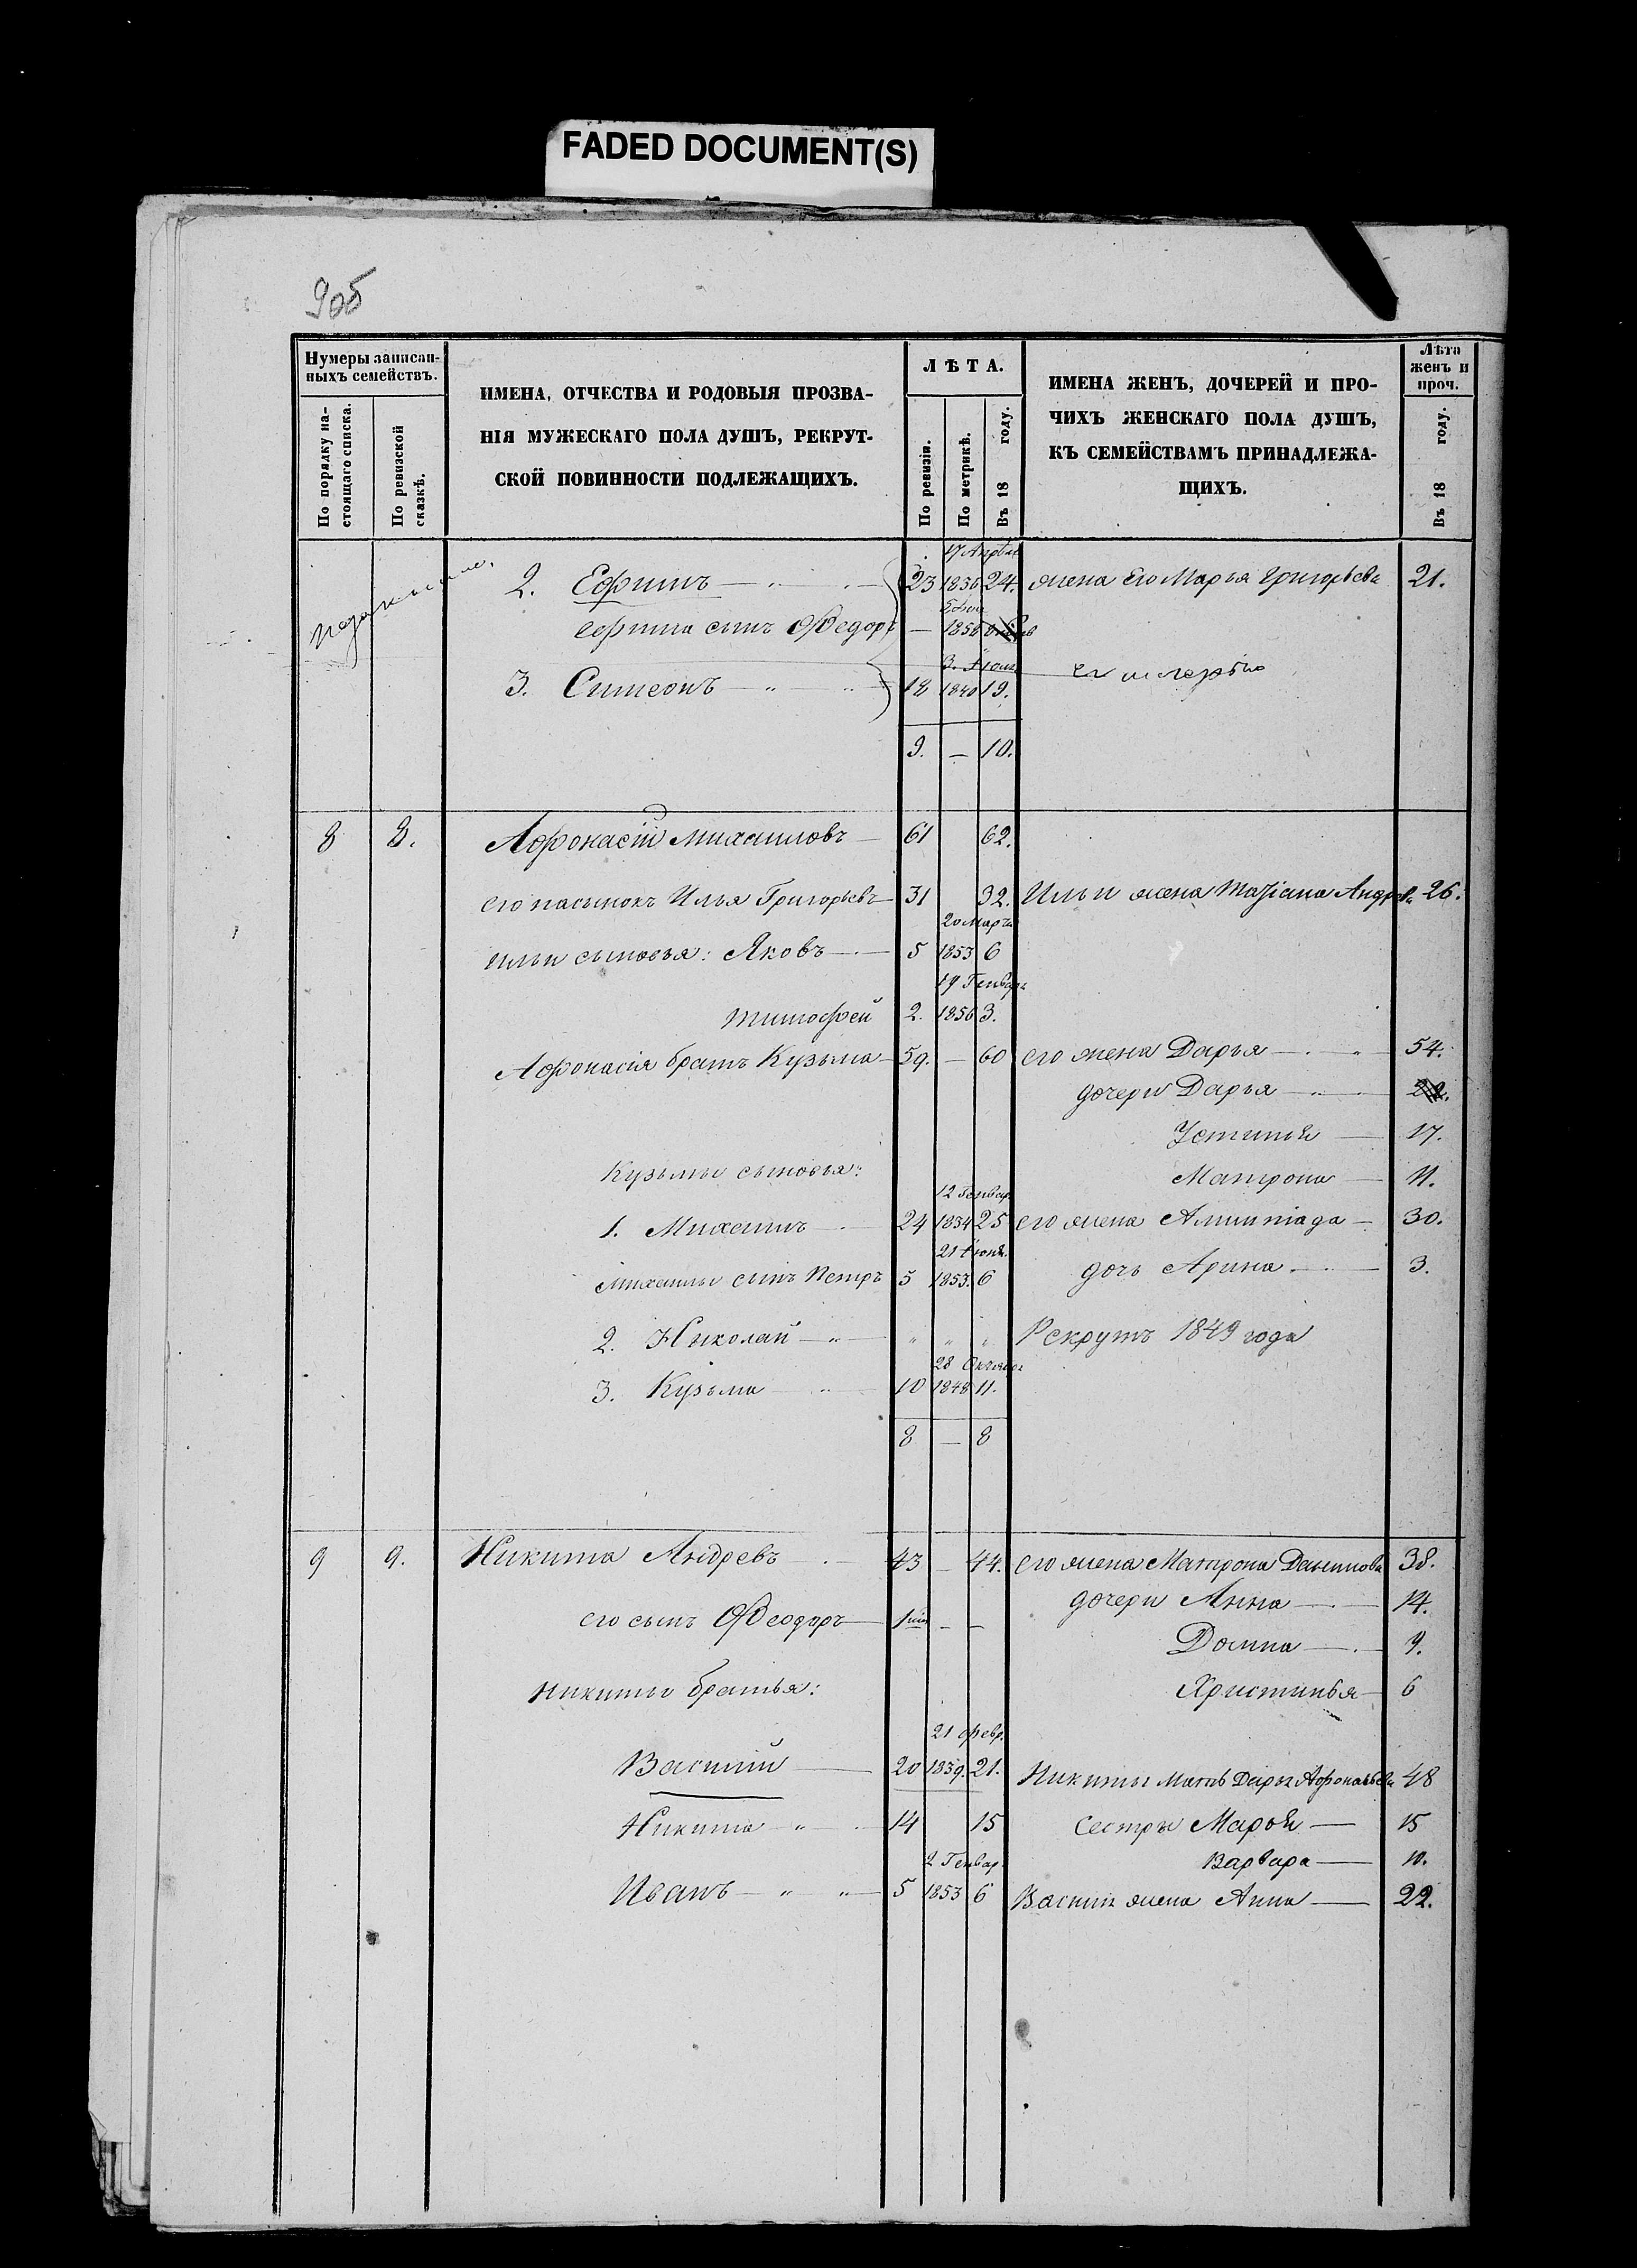 FADED DOCUMENT(S)
905
Нумеры записан-
ныхъ семействъ.
По порядку на-
стоящаго списка.
По ревизской
сказкѣ.
ИМЕНА, ОТЧЕСТВА И РОДОВЫЯ ПРОЗВА-
НІЯ МУЖЕСКАГО ПОЛА ДУШЪ, РЕКРУТ-
СКОЙ ПОВИННОСТИ ПОДЛЕЖАЩИХЪ.
ЛѢТА.
По ревизіи.
По метрикѣ.
Въ 18 году.
ИМЕНА ЖЕНЪ, ДОЧЕРЕЙ И ПРО-
ЧИХЪ ЖЕНСКАГО ПОЛА ДУШЪ,
КЪ СЕМЕЙСТВАМЪ ПРИНАДЛЕЖА-
ЩИХЪ.
Лѣта
женъ и
проч.
Въ 18 году.
17 Апрѣля
2. Ефимъ 23 1836 24. жена его Марья Григорьева 21.
Ефима сынъ Ѳедоръ — 1858
3. Симеонъ 18 1840 19.
9. — 10.
8 8. Афонасій Михаиловъ 61 62.
его пасынокъ Илья Григорьевъ 31 32. Ильи жена Татіана Андреева 26.
20 Марта
Ильи сыновья: Яковъ 5 1853 6
19 Генваря
Тимофей 2. 1856 3.
Афонасія братъ Кузьма 59. — 60 его жена Дарья 54.
дочери Дарья
Устинья 17.
Кузьмы сыновья: Матрона 11.
12 Генвар.
1. Михаилъ 24 1834 25 его жена Алимпіада 30.
21 Іюня.
Михаилы сынъ Петръ 5 1853. 6 дочь Арина 3.
2. Николай " " " Рекрутъ 1849 года
28 Октября
3. Кузьма 10 1848 11.
8 — 8
9 9. Никита Андревъ 43 — 44. его жена Матрона Данилова 38.
дочери Анна 14.
его сынъ Ѳеодоръ — —
Домна 9.
Никиты братья: Христинья 6
21 Февр.
Василій 20 1839. 21. Никиты мать Дарья Афонасьева 48
Никита 14 15 Сестры Марья 15
2 Генвар. Варвара 10.
Иванъ 5 1853 6 Василія жена Анна 22.